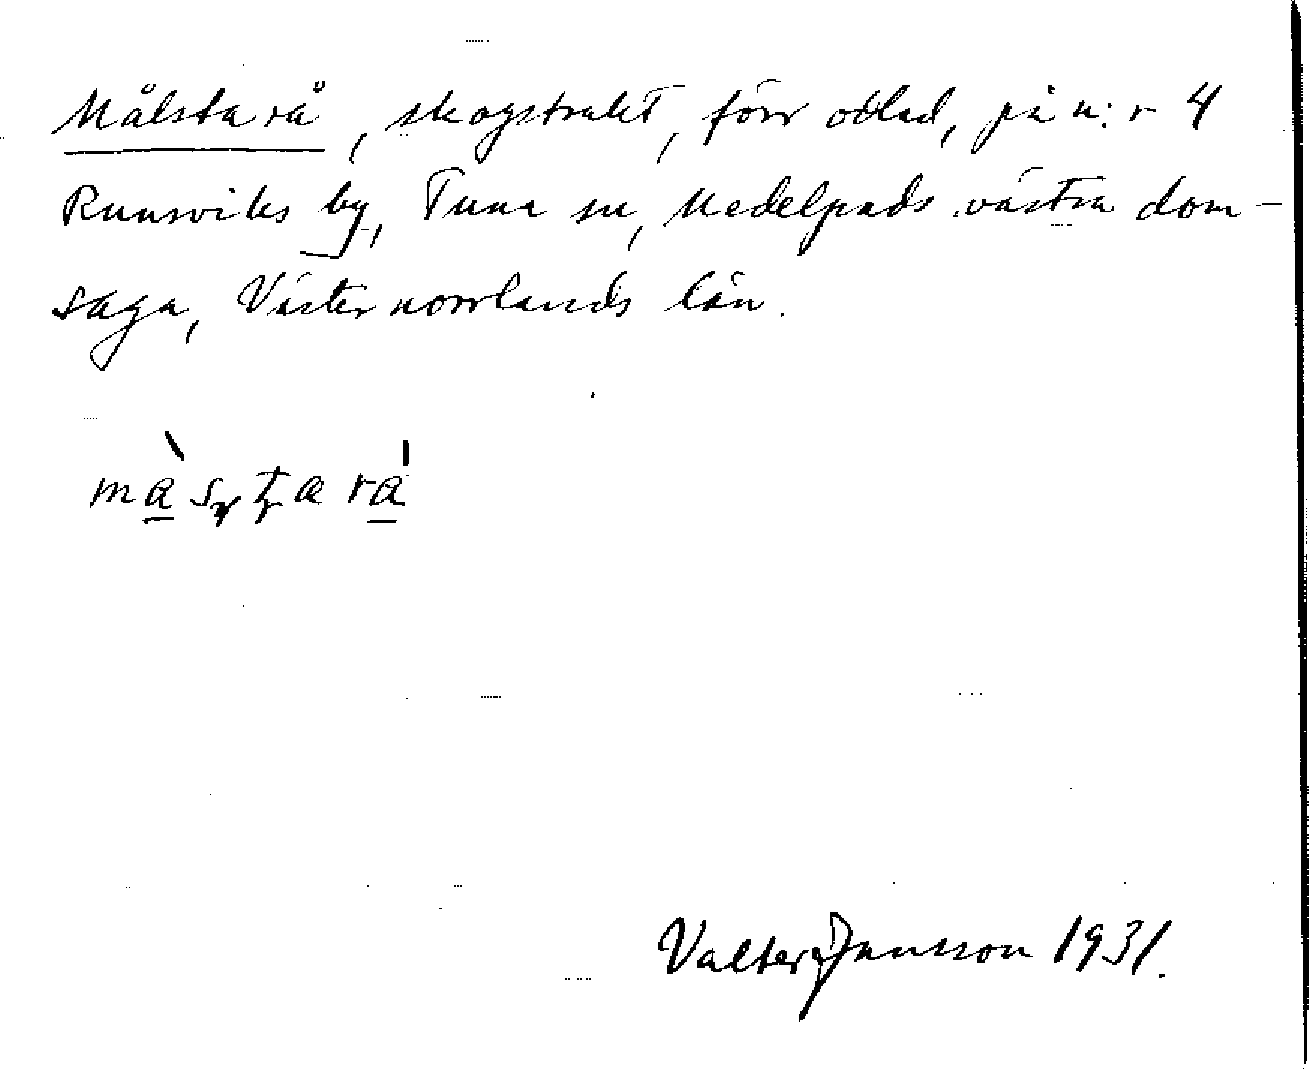 Målsta rå, skogstrakt, förr odlad, på n:r 4
Runsviks by, Tuna sn, Medelpads västra dom-
saga, Västernorrlands län.
mà̲sta ra̲̍
Valter Jansson 1931.